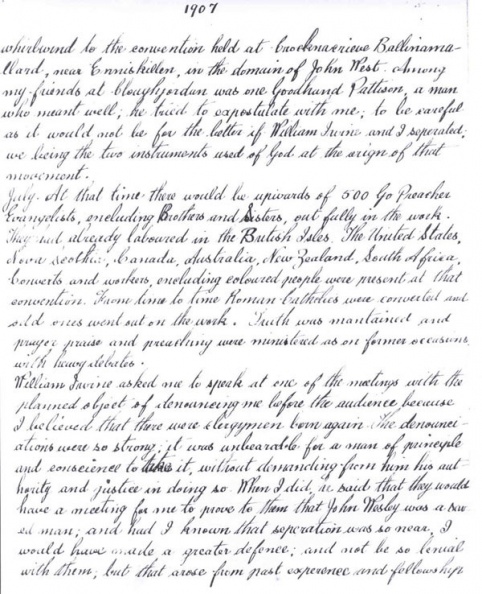 1907
whirlwind to the convention held at Crocknacrieve Ballinama-
llard, near Enniskillen, in the domain of John West. Among
my friends at Cloughjordan was one Goodhand Pattison, a man
who meant well; he tried to expostulate with me; to be careful
as it would not be for the better if William Irvine and I seperated;
we being the two instruments used of God at the origin of that
movement.
July. At that time there would be upwards of 500 Go Preacher
Evangelists, encluding Brothers and Sisters, out fully in the work.
They had already laboured in the British Isles, The United States,
Nova Scotia, Canada, Australia, New Zealand, South Africa,
Converts and workers, encluding coloured people were present at that
convention. From time to time Roman Catholics were converted and
odd ones went out on the work. Truth was mantained and
prayer praise and preaching were ministered as on former occasions,
with heavy debates.
William Irvine asked me to speak at one of the meetings with the
planned object of denouncing me before the audience because
I believed that there were clergymen born again. The denounci-
ations were so strong; it was unbearable for a man of principle
and conscience to take it, without demanding from him his aut-
hority and justice in doing so. When I did, he said that they would
have a meeting for me to prove to them that John Wesley was a sav-
ed man; and had I known that seperation was so near, I
would have made a greater defence; and not be so lenial
with them, but that arose from past experence and fellowship